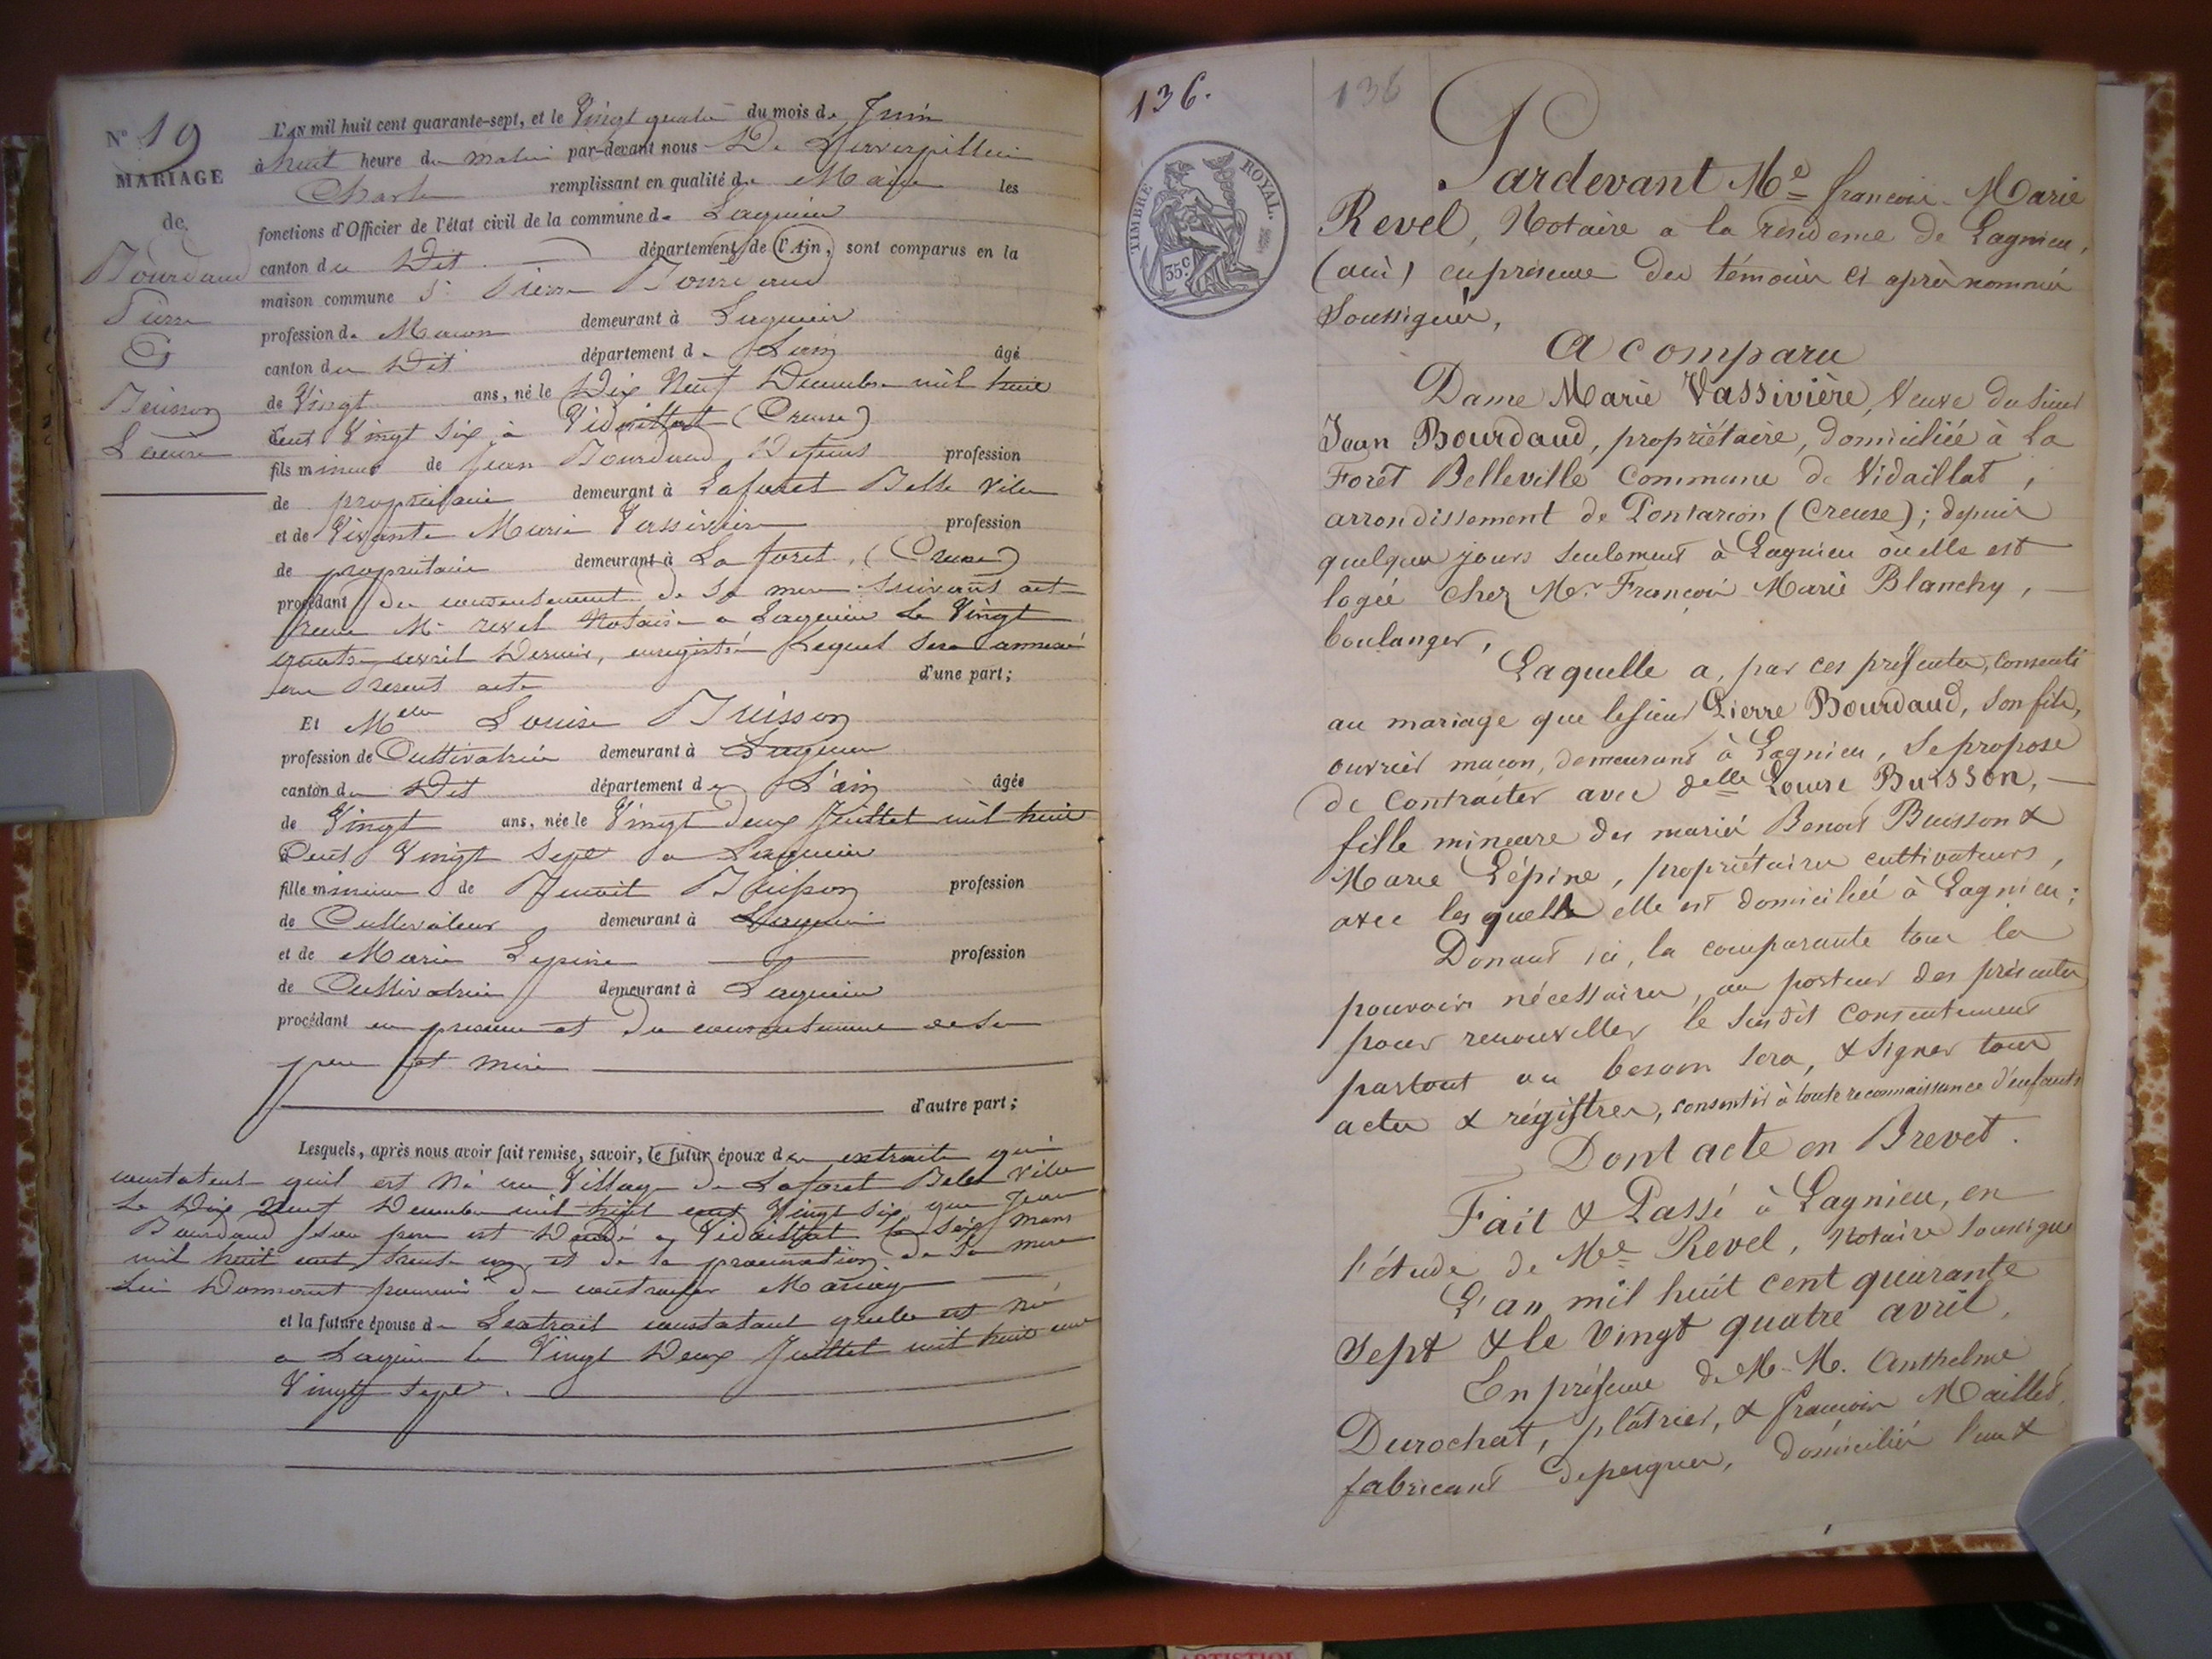 N° 19
MARIAGE
de
Bourdaud
Pierre
Et
Buisson
Louise
L'AN mil huit cent quarante-sept, et le Vingt quatre du mois de Juin
à huit heure du matin par-devant nous De
Charle remplissant en qualité de Maire les
fonctions d'Officier de l'état civil de la commune de Lagnieu
canton du Dit département de l'Ain, sont comparus en la
maison commune Sr Pierre Bourdaud
profession de Macon demeurant à Lagnieu
canton du Dit département de Lain âgé
de Vingt ans, né le Dix Neuf Decembre mil huit
Cent Vingt Six à Vidaillat (Creuse)
fils mineur de Jean Bourdaud, Defunt profession
de propriétaire demeurant à Laforest Belle Ville
et de Vivante Marie Vassiviere profession
de propriétaire demeurant à La foret, (Creuse)
procédant du consentement de Sa mere suivant acte
recu Me revel Notaire a Lagnieu le Vingt
quatre avril Dernier, enregistré Lequel Sera annexé
au Present acte d'une part;
Et Melle Louise Buisson
profession de Cultivatrice demeurant à Lagnieu
canton du Dit département de L'ain âgée
de Vingt ans, née le Vingt deux Juillet mil huit
Cent Vingt Sept a Lagnieu
fille mineure de Benoit Buisson profession
de Cultivateur demeurant à Lagnieu
et de Marie Lepine profession
de Cultivatrice demeurant à Lagnieu
procédant en presence et du consentement de Se
pere et mere
d'autre part;
Lesquels, après nous avoir fait remise, savoir, le futur époux de extraits qui
constatent quil est Né au Village de Laforest Belle Ville
Le Dix Neuf Decembre mil huit cent Vingt Six, que Jean
Bourdaud Son pere est Décédé a Vidaillat le Seize Mars
mil huit cent trente un et de la procuration de Sa mere
Lui Donnant pouvoir de contracter Mariage
et la future épouse de Lextrait constatant quelle est Né
a Lagnieu le Vingt Deux Juillet mil huit cent
Vingt Sept.
136.
136
TIMBRE ROYAL.
35c
Pardevant Me francois-Marie
Revel, Notaire a la résidence de Lagnieu,
(ain) en présence des témoins ci après nommés
Soussignés,
A comparu
Dame Marie Vassivière, Veuve du Sieur
Jean Bourdaud, propriétaire, domiciliée à La
Forêt Belleville Commune de Vidaillat,
arrondissement de Pontarion (Creuse); depuis
quelques jours seulement à Lagnieu où elle est
logée chez Mr. François Marie Blanchy,
boulanger,
Laquelle a, par ces présentes, consenti
au mariage que le sieur Pierre Bourdaud, Son fils,
ouvrier macon, demeurant à Lagnieu, Se propose
de contracter avec delle Louise Buisson,
fille mineure des mariés Benoit Buisson &
Marie Lépine, propriétaires cultivateurs,
avec lesquels elle est domiciliée à Lagnieu;
Donant ici, la comparante tous les
pouvoirs nécessaires, au porteur des présentes
pour renouveller le Susdit Consentement
partout ou besoin sera, & signer tous
actes & régistres, consentir à toute reconnaissance d'enfants
Dont acte en Brevet.
Fait & Passé à Lagnieu, en
l'étude de Me Revel, Notaire Soussigné
L'an mil huit cent quarante
Sept & le vingt quatre avril,
En présence de M. M. Anthelme
Durochat, plâtrier, & francois Maillet,
fabricant de peignes, domiciliés l'un &